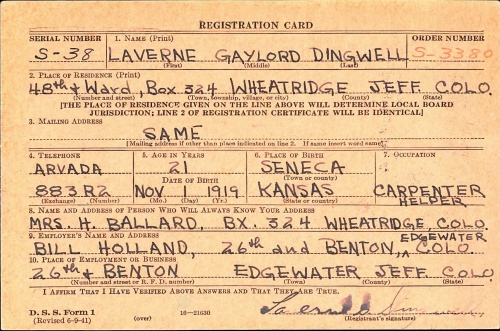 REGISTRATION CARD
SERIAL NUMBER 1. NAME (Print) ORDER NUMBER
S-38 LAVERNE GAYLORD DINGWELL S-3380
(First) (Middle) (Last)
2. PLACE OF RESIDENCE (Print)
48th & Ward, Box 324 WHEATRIDGE JEFF COLO.
(Number and street) (Town, township, village, or city) (County) (State)
[THE PLACE OF RESIDENCE GIVEN ON THE LINE ABOVE WILL DETERMINE LOCAL BOARD
JURISDICTION; LINE 2 OF REGISTRATION CERTIFICATE WILL BE IDENTICAL]
3. MAILING ADDRESS
SAME
[Mailing address if other than place indicated on line 2. If same insert word same]
4. TELEPHONE 5. AGE IN YEARS 6. PLACE OF BIRTH 7. OCCUPATION
ARVADA 21 SENECA
DATE OF BIRTH (Town or county)
883R2 NOV 1 1919 KANSAS CARPENTER
HELPER
(Exchange) (Number) (Mo.) (Day) (Yr.) (State or country)
8. NAME AND ADDRESS OF PERSON WHO WILL ALWAYS KNOW YOUR ADDRESS
MRS. H. BALLARD, BX. 324 WHEATRIDGE COLO.
9. EMPLOYER'S NAME AND ADDRESS
EDGEWATER
BILL HOLLAND, 26th and BENTON, COLO.
10. PLACE OF EMPLOYMENT OR BUSINESS
26th & BENTON EDGEWATER JEFF COLO
(Number and street or R. F. D. number) (Town) (County) (State)
I AFFIRM THAT I HAVE VERIFIED ABOVE ANSWERS AND THAT THEY ARE TRUE.
D. S. S. Form 1
(Revised 6-9-41) (over) 16—21630 (Registrant's signature)